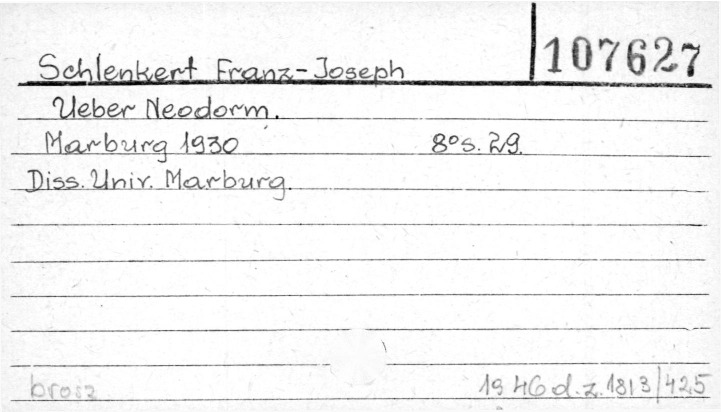 107627
Schlenkert Franz-Joseph
Ueber Neodorm.
Marburg 1930 8°s. 29.
Diss. Univ. Marburg.
brosz 1946 d.z. 1813/425